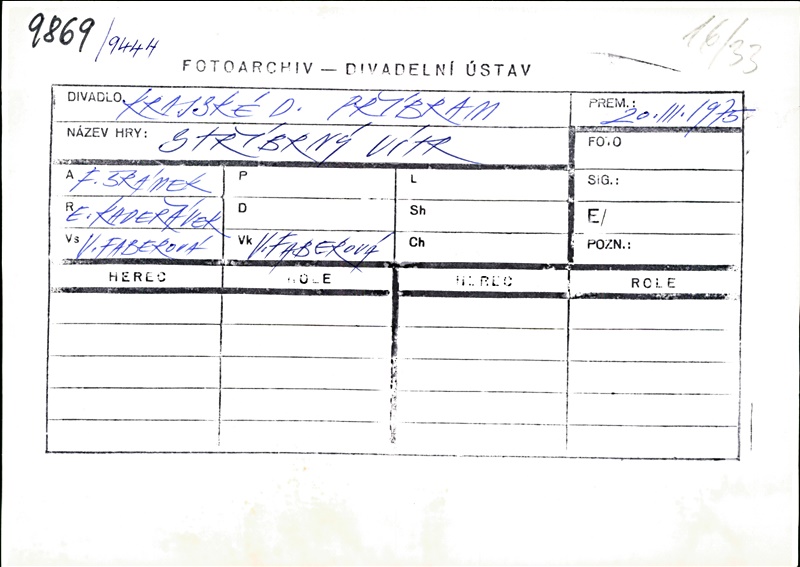 9869/9444
16/33
FOTOARCHIV — DIVADELNÍ ÚSTAV
DIVADLO: KRAJSKÉ D. PŘÍBRAM
PREM.: 20.III.1975
NÁZEV HRY: STŘÍBRNÝ VÍTR
FOTO
A F. ŠRÁMEK
P
L
SIG.:
R E. KADEŘÁVEK
D
Sh
E/
Vs V. FABEROVÁ
Vk V. FABEROVÁ
Ch
POZN.:
HEREC ROLE HEREC ROLE